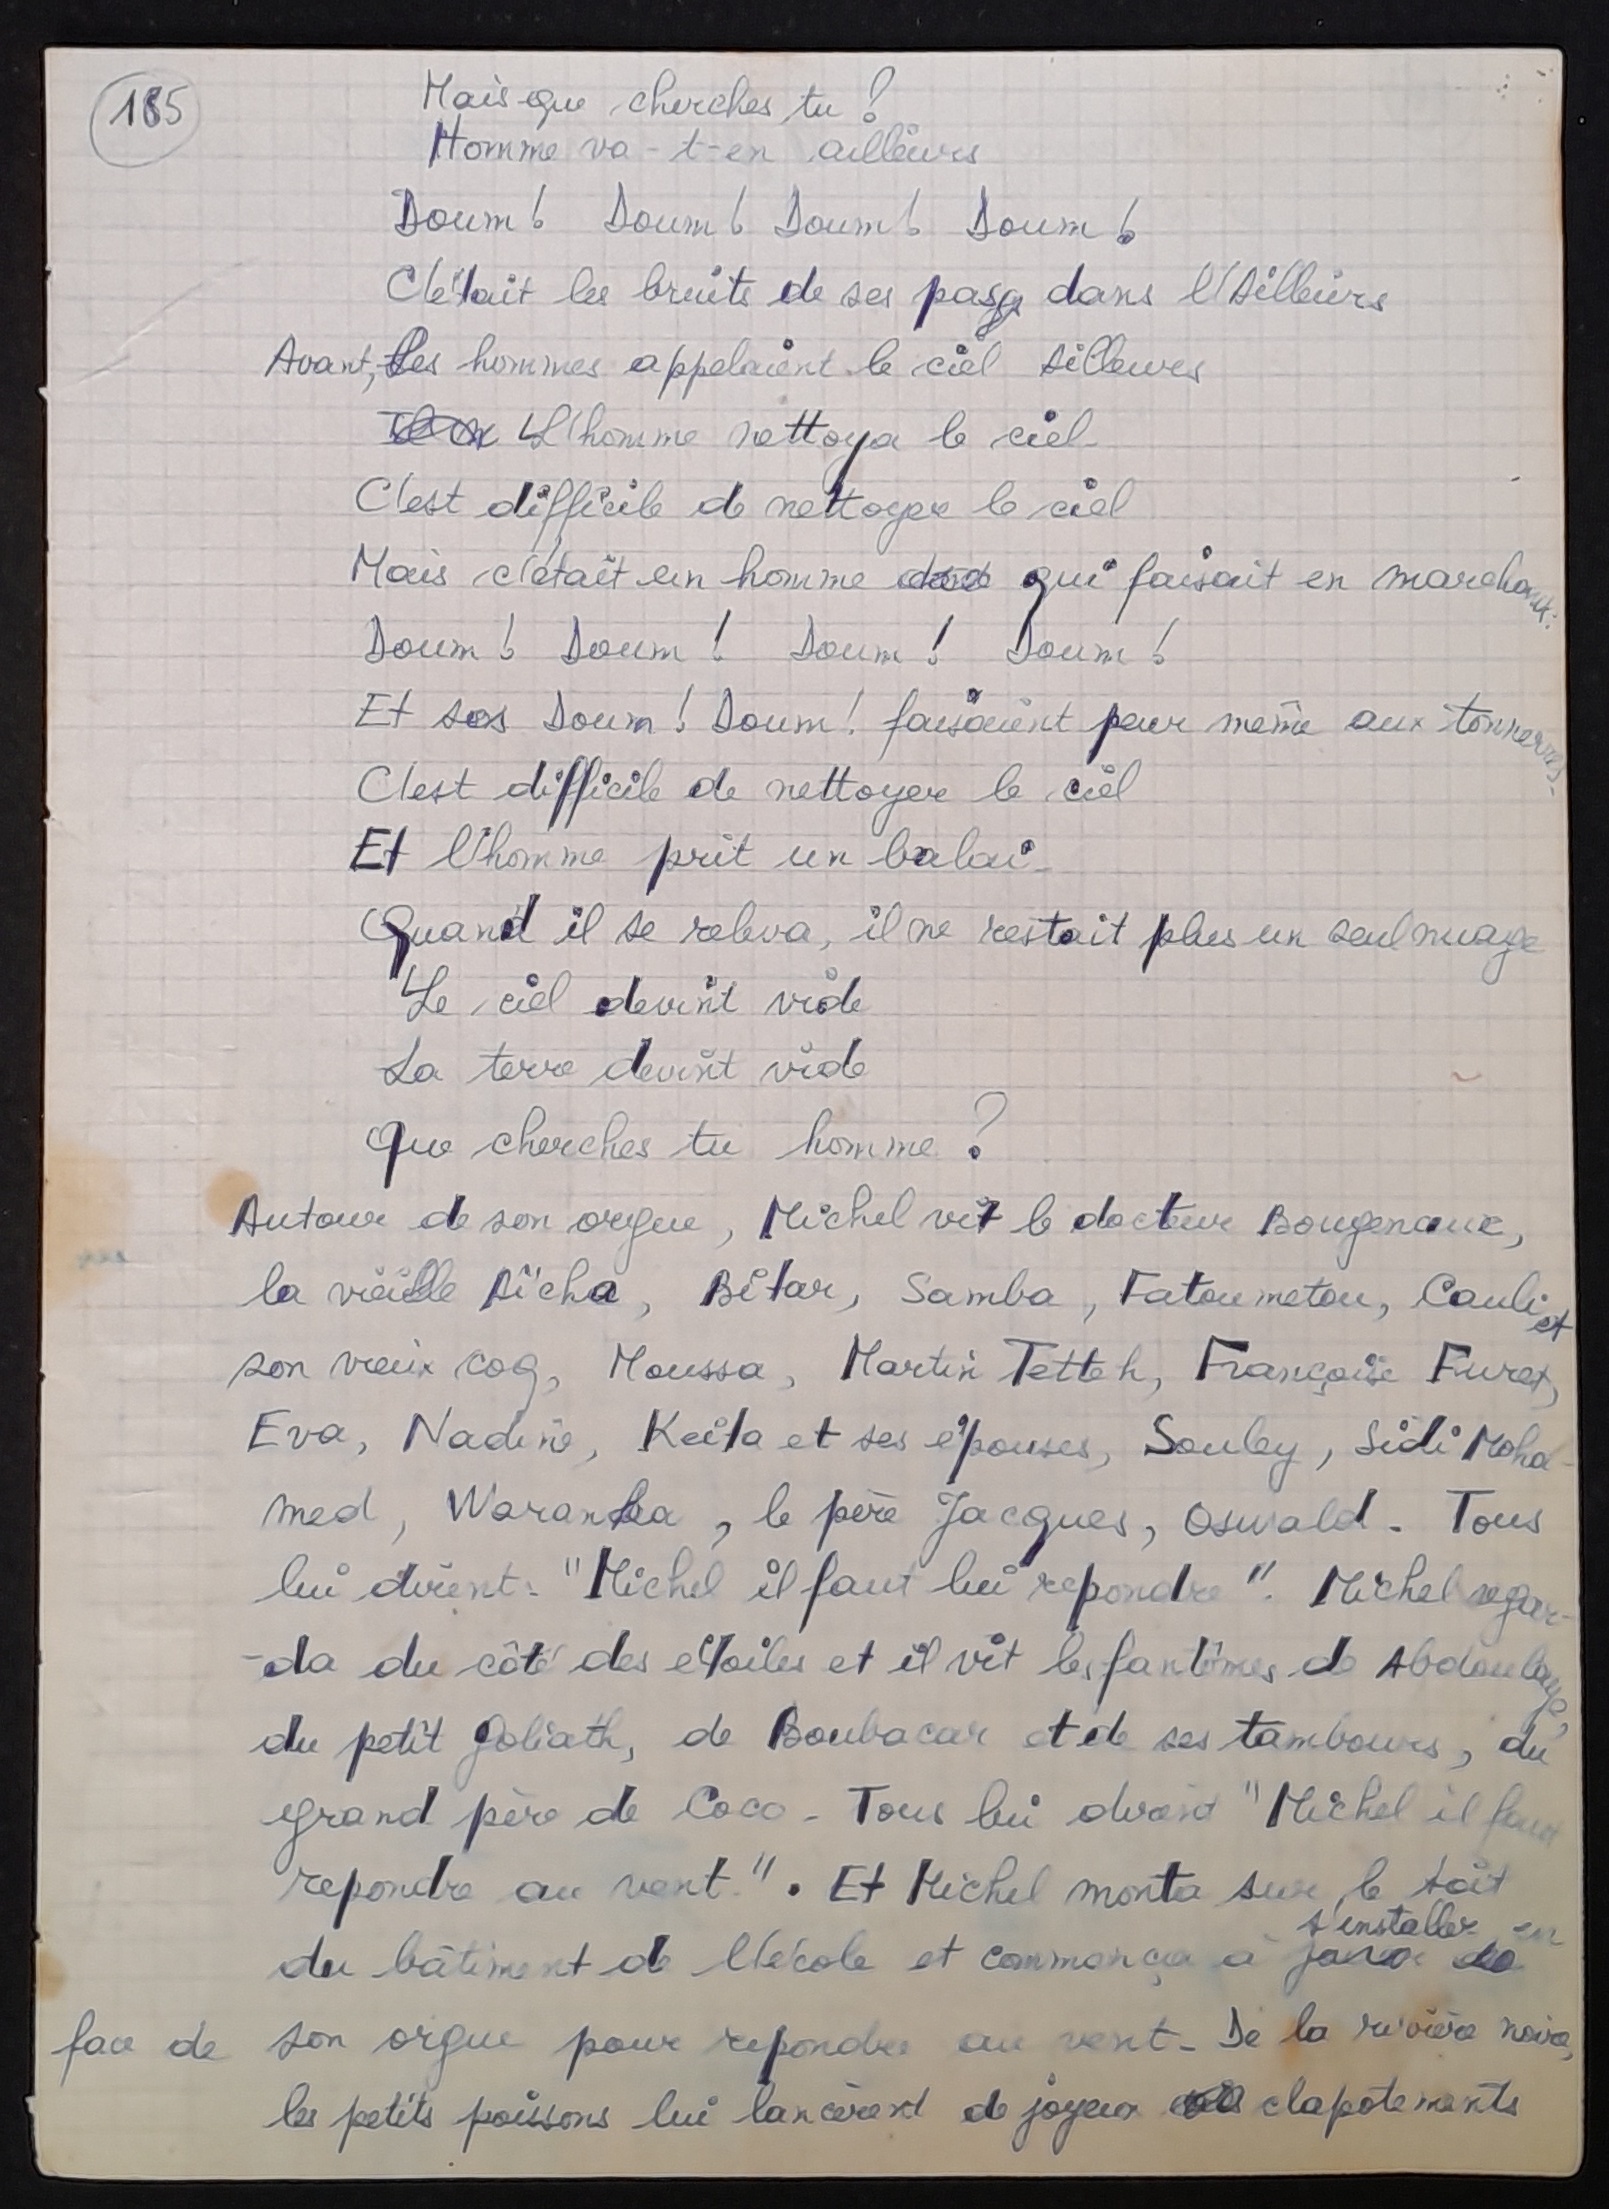 185
Mais que cherches tu ?
Homme va-t-en ailleurs
Doum ! Doum ! Doum ! Doum !
C'était les bruits de ses pas dans l'Ailleurs
Avant, Les hommes appelaient le ciel Ailleurs
L'homme nettoya le ciel
C'est difficile de nettoyer le ciel
Mais c'était un homme qui faisait en marchant :
Doum ! Doum ! Doum ! Doum !
Et ses Doum ! Doum ! faisaient peur même aux tonnerres.
C'est difficile de nettoyer le ciel
Et l'homme prit un balai.
Quand il se releva, il ne restait plus un seul nuage
Le ciel devint vide
La terre devint vide
Que cherches tu homme ?
Autour de son orgue, Michel vit le docteur Bougenaux,
la vieille Aïcha, Bitar, Samba, Fatoumetou, Cauli et
son vieux coq, Moussa, Martin Tetteh, Françoise Furet,
Eva, Nadine, Keita et ses épouses, Souley, Sidi Moha-
med, Waranka, le père Jacques, Oswald. Tous
lui dirent. "Michel il faut lui repondre". Michel regar-
-da du côté des étoiles et il vit les fantômes de Abdoulaye,
du petit Goliath, de Boubacar et de ses tambours, du
grand père de Coco. Tous lui dirent "Michel il faut
repondre au vent". Et Michel monta sur le toit
s'installer en
du bâtiment de l'école et commença à jouer de
face de son orgue pour repondre au vent. De la rivière noire,
les petits poissons lui lancèrent de joyeux clapotements